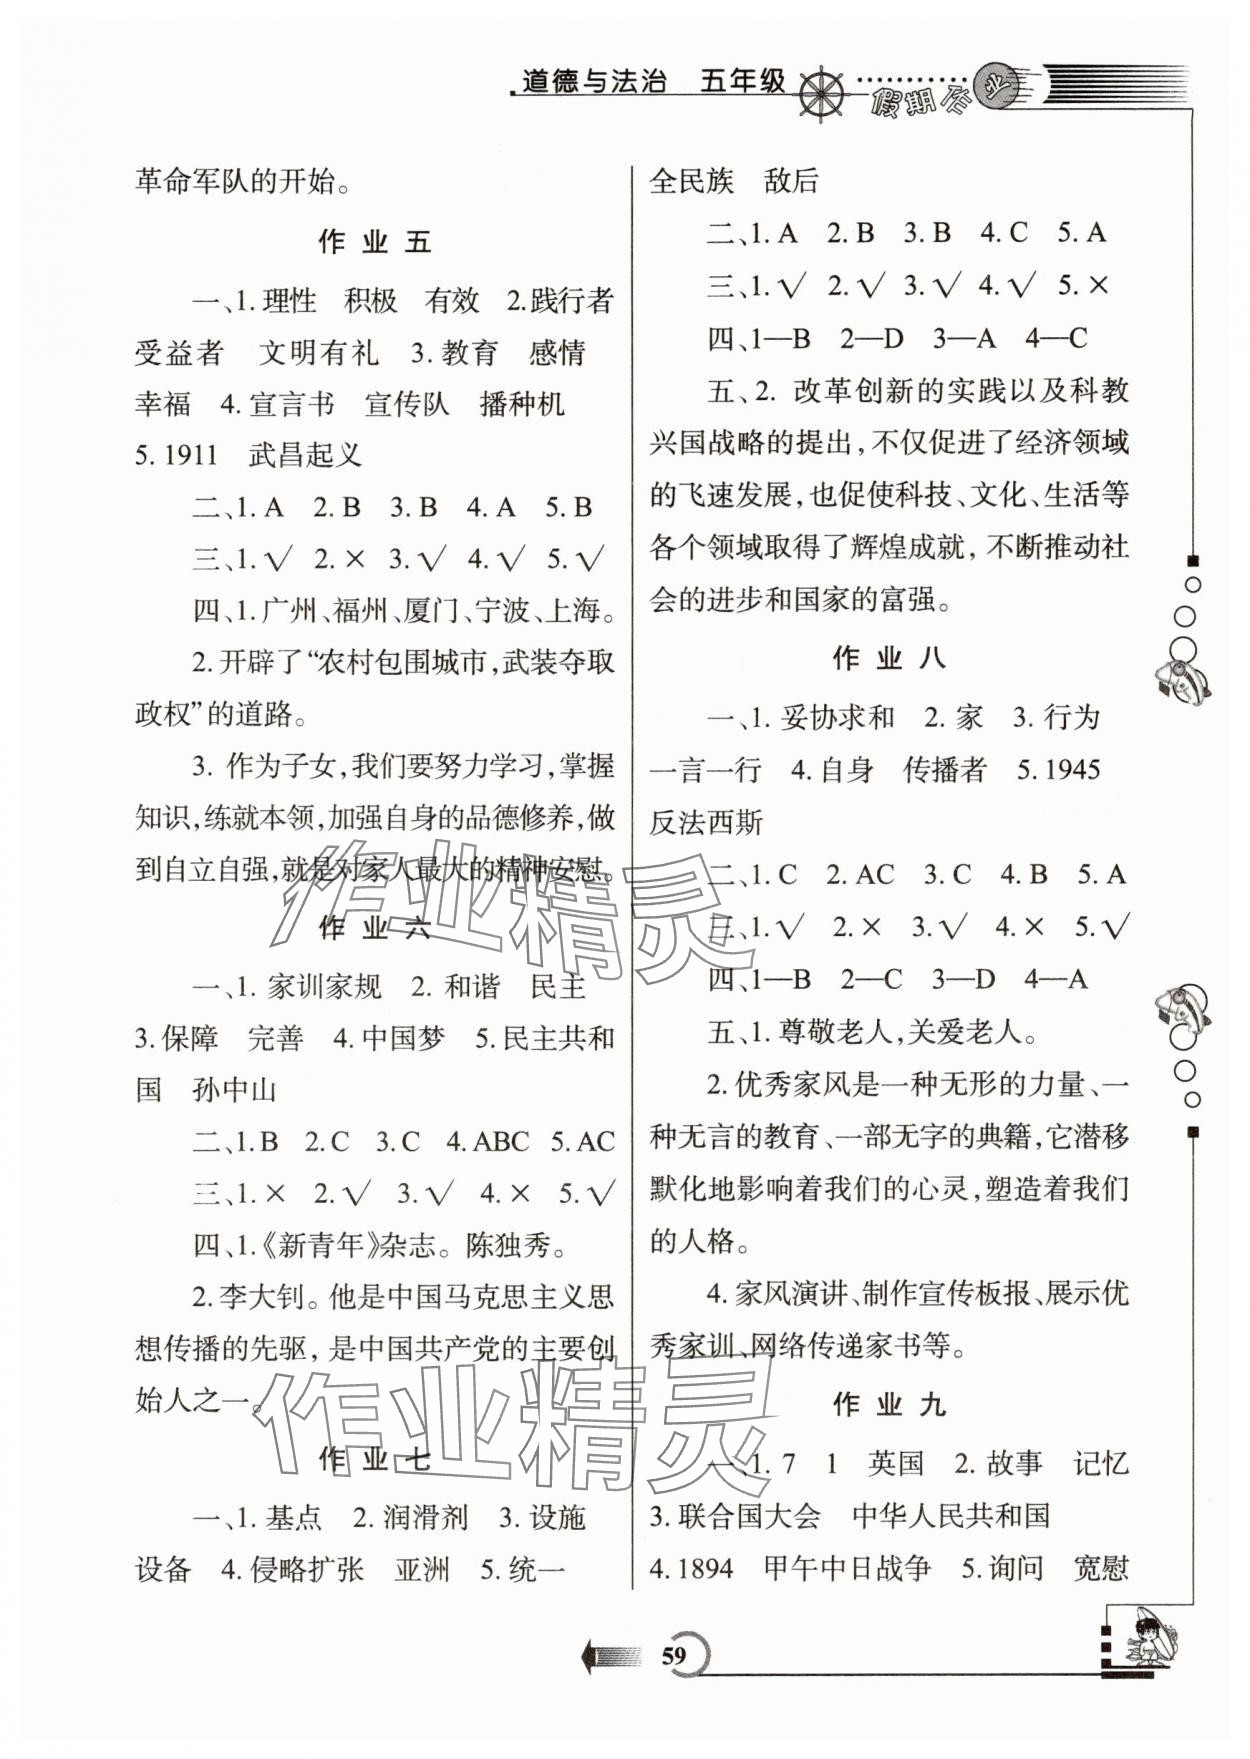 道德与法治 五年级
假期作业
革命军队的开始。
作业五
一、1.理性 积极 有效 2.践行者
受益者 文明有礼 3.教育 感情
幸福 4.宣言书 宣传队 播种机
5.1911 武昌起义
二、1.A 2.B 3.B 4.A 5.B
三、1.√ 2.× 3.√ 4.√ 5.√
四、1.广州、福州、厦门、宁波、上海。
2.开辟了“农村包围城市,武装夺取
政权”的道路。
3. 作为子女,我们要努力学习,掌握
知识,练就本领,加强自身的品德修养,做
到自立自强,就是对家人最大的精神安慰。
作业六
一、1.家训家规 2.和谐 民主
3.保障 完善 4.中国梦 5.民主共和
国 孙中山
二、1.B 2.C 3.C 4.ABC 5.AC
三、1.× 2.√ 3.√ 4.× 5.√
四、1.《新青年》杂志。陈独秀。
2.李大钊。他是中国马克思主义思
想传播的先驱,是中国共产党的主要创
始人之一。
作业七
一、1.基点 2.润滑剂 3.设施
设备 4.侵略扩张 亚洲 5.统一
全民族 敌后
二、1.A 2.B 3.B 4.C 5.A
三、1.√ 2.√ 3.√ 4.√ 5.×
四、1—B 2—D 3—A 4—C
五、2. 改革创新的实践以及科教
兴国战略的提出,不仅促进了经济领域
的飞速发展,也促使科技、文化、生活等
各个领域取得了辉煌成就,不断推动社
会的进步和国家的富强。
作业八
一、1.妥协求和 2.家 3.行为
一言一行 4.自身 传播者 5.1945
反法西斯
二、1.C 2.AC 3.C 4.B 5.A
三、1.√ 2.× 3.√ 4.× 5.√
四、1—B 2—C 3—D 4—A
五、1.尊敬老人,关爱老人。
2.优秀家风是一种无形的力量、一
种无言的教育、一部无字的典籍,它潜移
默化地影响着我们的心灵,塑造着我们
的人格。
4.家风演讲、制作宣传板报、展示优
秀家训、网络传递家书等。
作业九
一、1.7 1 英国 2.故事 记忆
3.联合国大会 中华人民共和国
4.1894 甲午中日战争 5.询问 宽慰
59
作业精灵
作业精灵